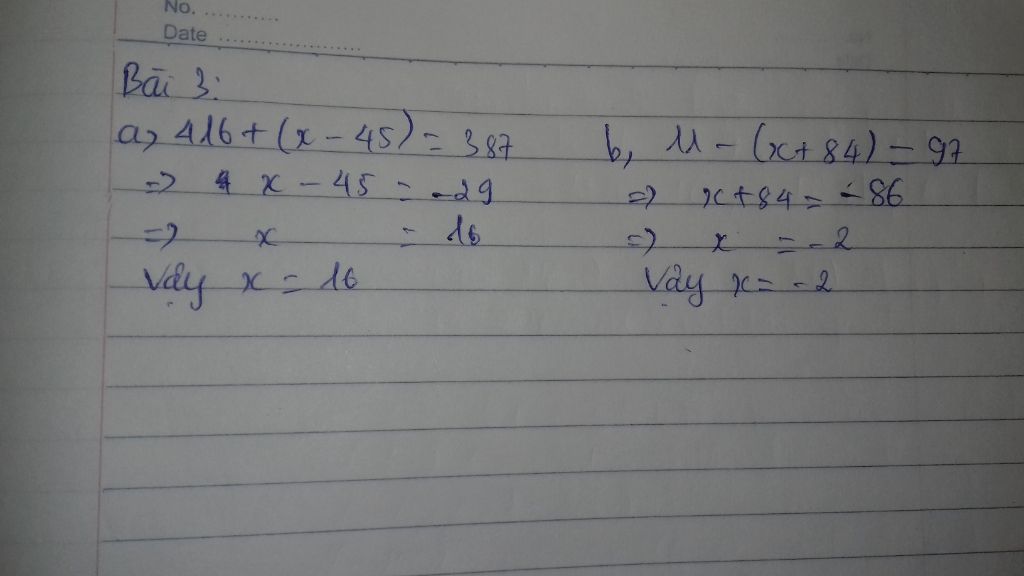 No. ............
Date ........................
Bài 3:
a, 416 + (x - 45) = 387
=> x - 45 = -29
=> x = 16
Vậy x = 16
b, 11 - (x + 84) = 97
=> x + 84 = -86
=> x = -2
Vậy x = -2